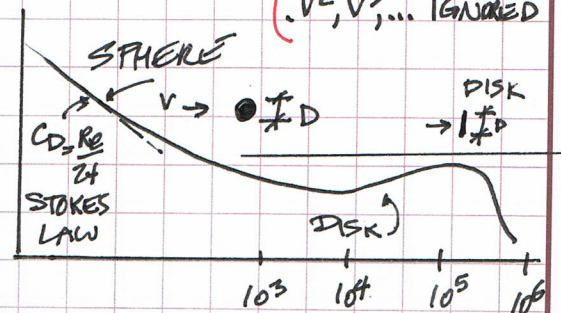 (.V², V³, ... IGNORED
SPHERE
V → D
DISK
→ D
CD = Re
24
STOKES
LAW
DISK
10³ 10⁴ 10⁵ 10⁶